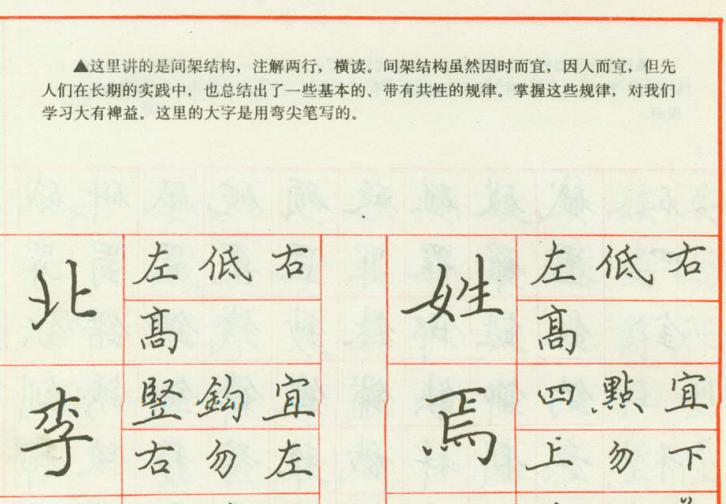 ▲这里讲的是间架结构，注解两行，横读。间架结构虽然因时而宜，因人而宜，但先
人们在长期的实践中，也总结出了一些基本的、带有共性的规律。掌握这些规律，对我们
学习大有裨益。这里的大字是用弯尖笔写的。
北
左低右
高
姓
左低右
高
李
竖鈎宜
右勿左
焉
四點宜
上勿下